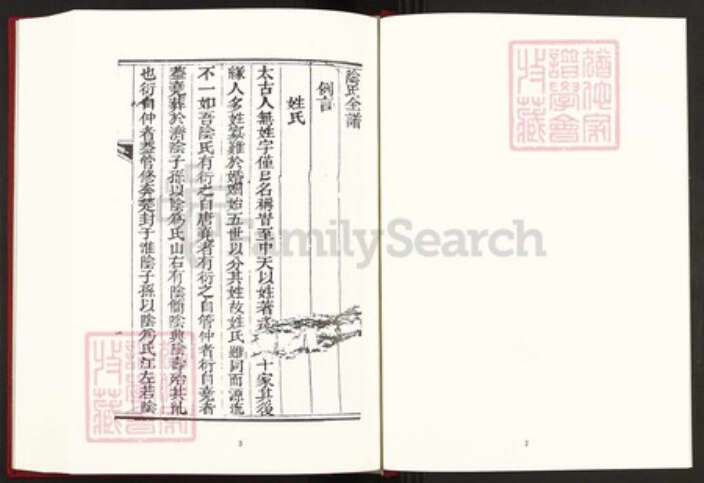 陰氏全譜
例言
姓氏
太古人無姓字僅已名稱耆至中天以姓著
十家其後
緣人多姓寡難於婚姻始五世以分其姓故姓氏雖同而源流
不一如吾陰氏有衍之自唐堯者有衍之自管仲者衍自堯者
蓋堯葬於濟陰子孫以陰為氏山右有陰簡陰興陰壽殆其胤
也衍自仲者蓋管修奔楚封于淮陰子孫以陰為氏江左若陰
FamilySearch
3
2